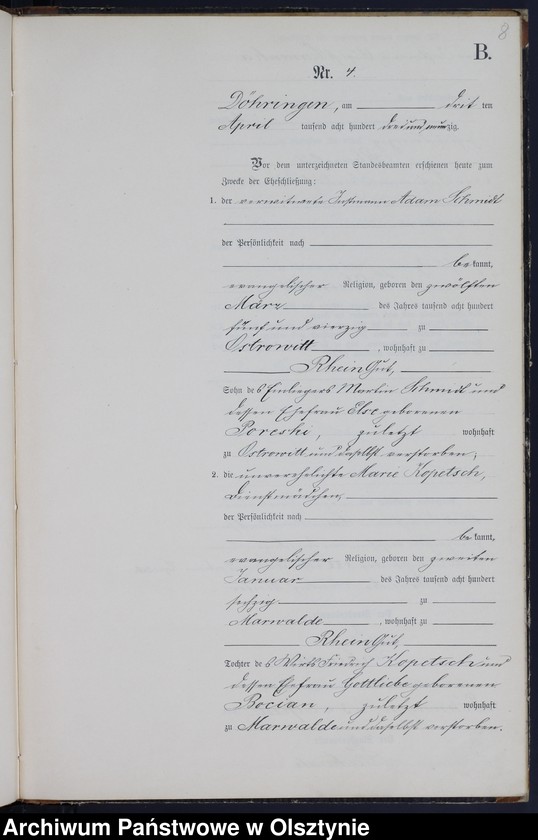 8
B.
Nr. 4.
Döhringen, am dritten
April tausend acht hundert dreiundneunzig.
Vor dem unterzeichneten Standesbeamten erschienen heute zum
Zwecke der Eheschließung:
1. der verwitwete Instmann Adam Schmidt
der Persönlichkeit nach
bekannt,
evangelischer Religion, geboren den zwölften
März des Jahres tausend acht hundert
fünf und vierzig zu
Ostrowitt, wohnhaft zu
Rhein Gut,
Sohn des Einliegers Martin Schmidt und
dessen Ehefrau Else geborenen
Poreski, zuletzt wohnhaft
zu Ostrowitt und daselbst verstorben;
2. die unverehelichte Marie Kopetsch,
Dienstmädchen,
der Persönlichkeit nach
bekannt,
evangelischer Religion, geboren den zweiten
Januar des Jahres tausend acht hundert
sechzig zu
Marwalde, wohnhaft zu
Rhein Gut,
Tochter des Wirts Friedrich Kopetsch und
dessen Ehefrau Gottliebe geborenen
Bocian, zuletzt wohnhaft
zu Marwalde und daselbst verstorben.
Archiwum Państwowe w Olsztynie